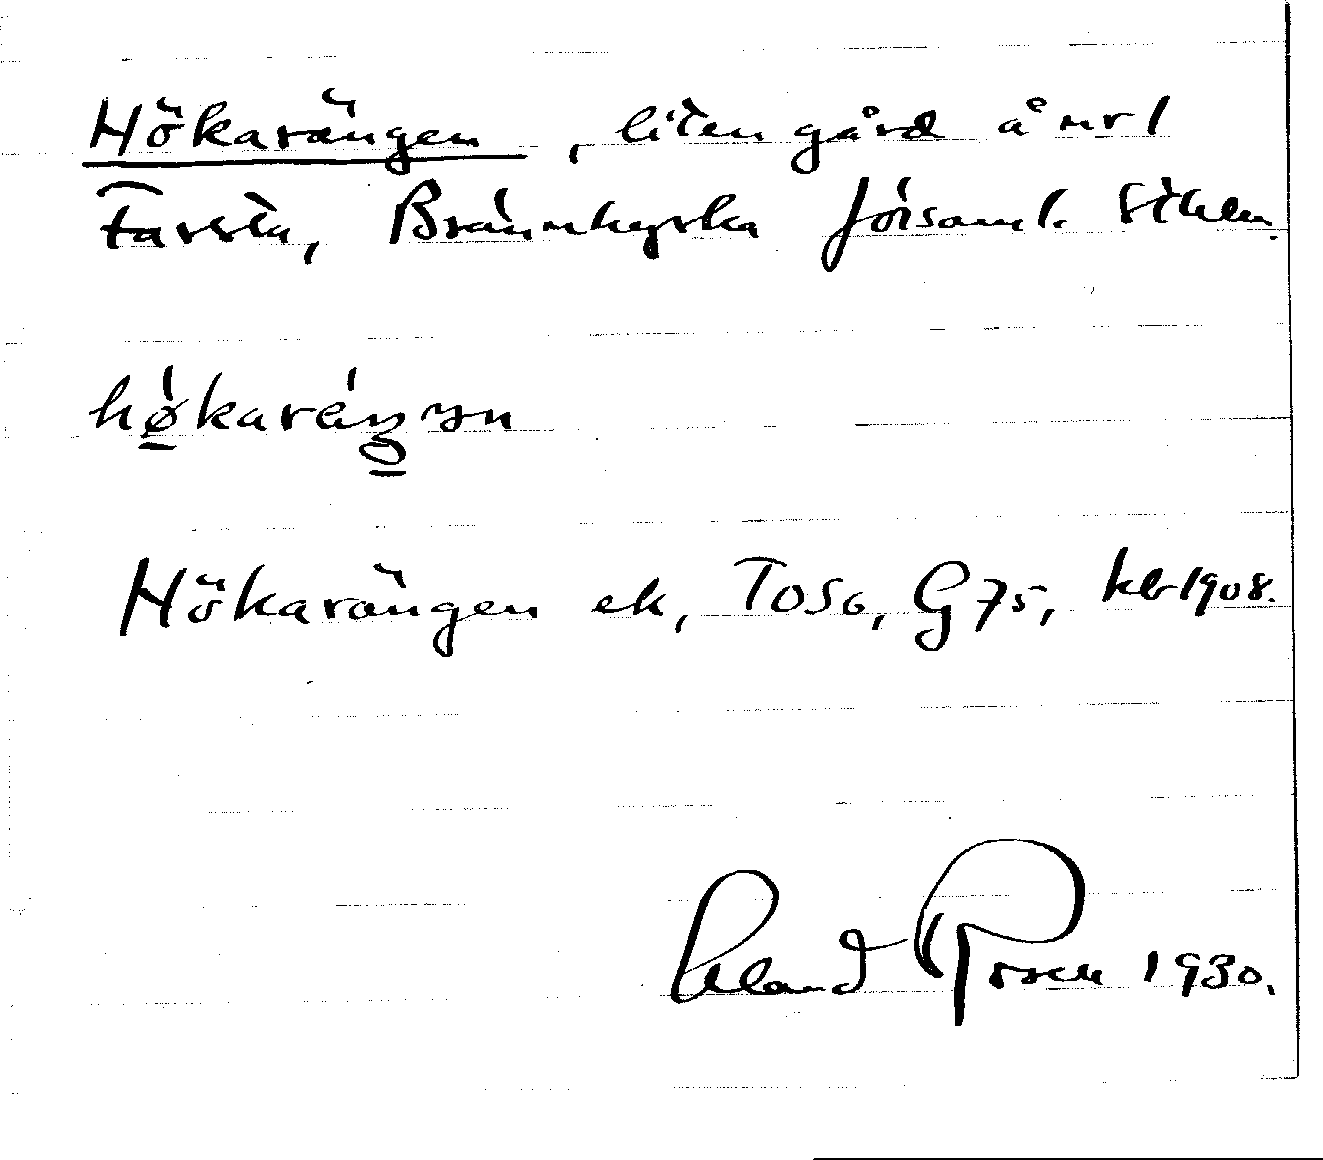 Hökarängen, liten gård å nr 1
Farsta, Brännkyrka församl. Sthlm.
hǿ̱karéŋ̱ən
Hökarängen ek, TOSo, G 75, kb 1908.
Rosell 1930.